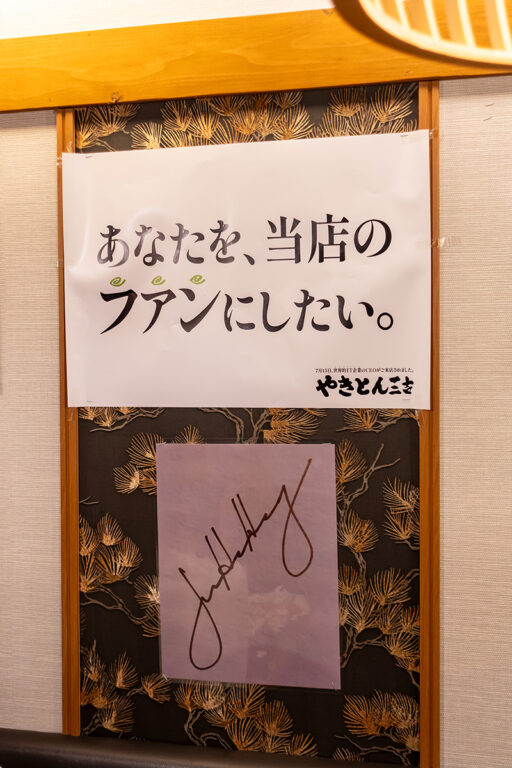 あなたを、当店の
ファンにしたい。
7月15日、世界的IT企業のCEOがご来店されました。
やきとん三吉